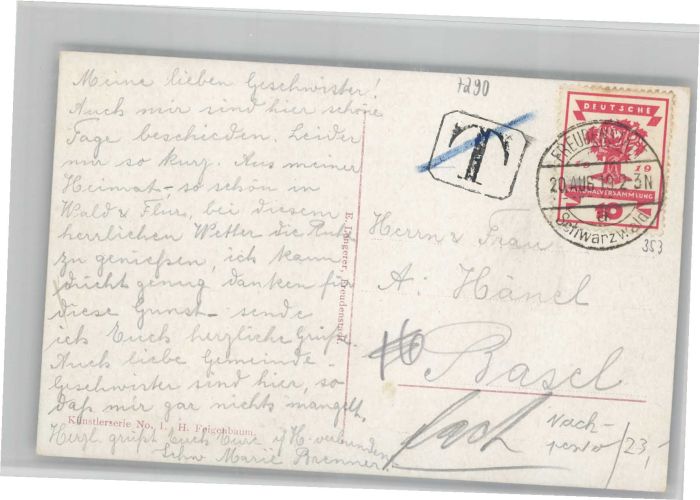 Meine lieben Geschwister!
Auch mir sind hier schöne
Tage beschieden. Leider
nur so kurz. Aus meiner
Heimat - so schön in
Wald & Flur, bei diesem
herrlichen Wetter die Ruhe
zu genießen, ich kann
nicht genug danken für
diese Gunst - sende
ich Euch herzliche Grüße.
Auch liebe Gemeinde-
Geschwister sind hier, so
daß mir gar nichts mangelt.
Herzl. grüßt Euch Eure i/H. verbundene
Schw. Marie Brenner
Künstlerserie No. 1. H. Feigenbaum.
E. Längerer, Freudenstadt.
7290
T
DEUTSCHE
19 19
NATIONALVERSAMMLUNG
10
FREUDENSTADT
20 AUG 19 2-3N
(Schwarzwald)
353
Herrn & Frau
A. Hänel
Basel
Nach-
porto /23,-